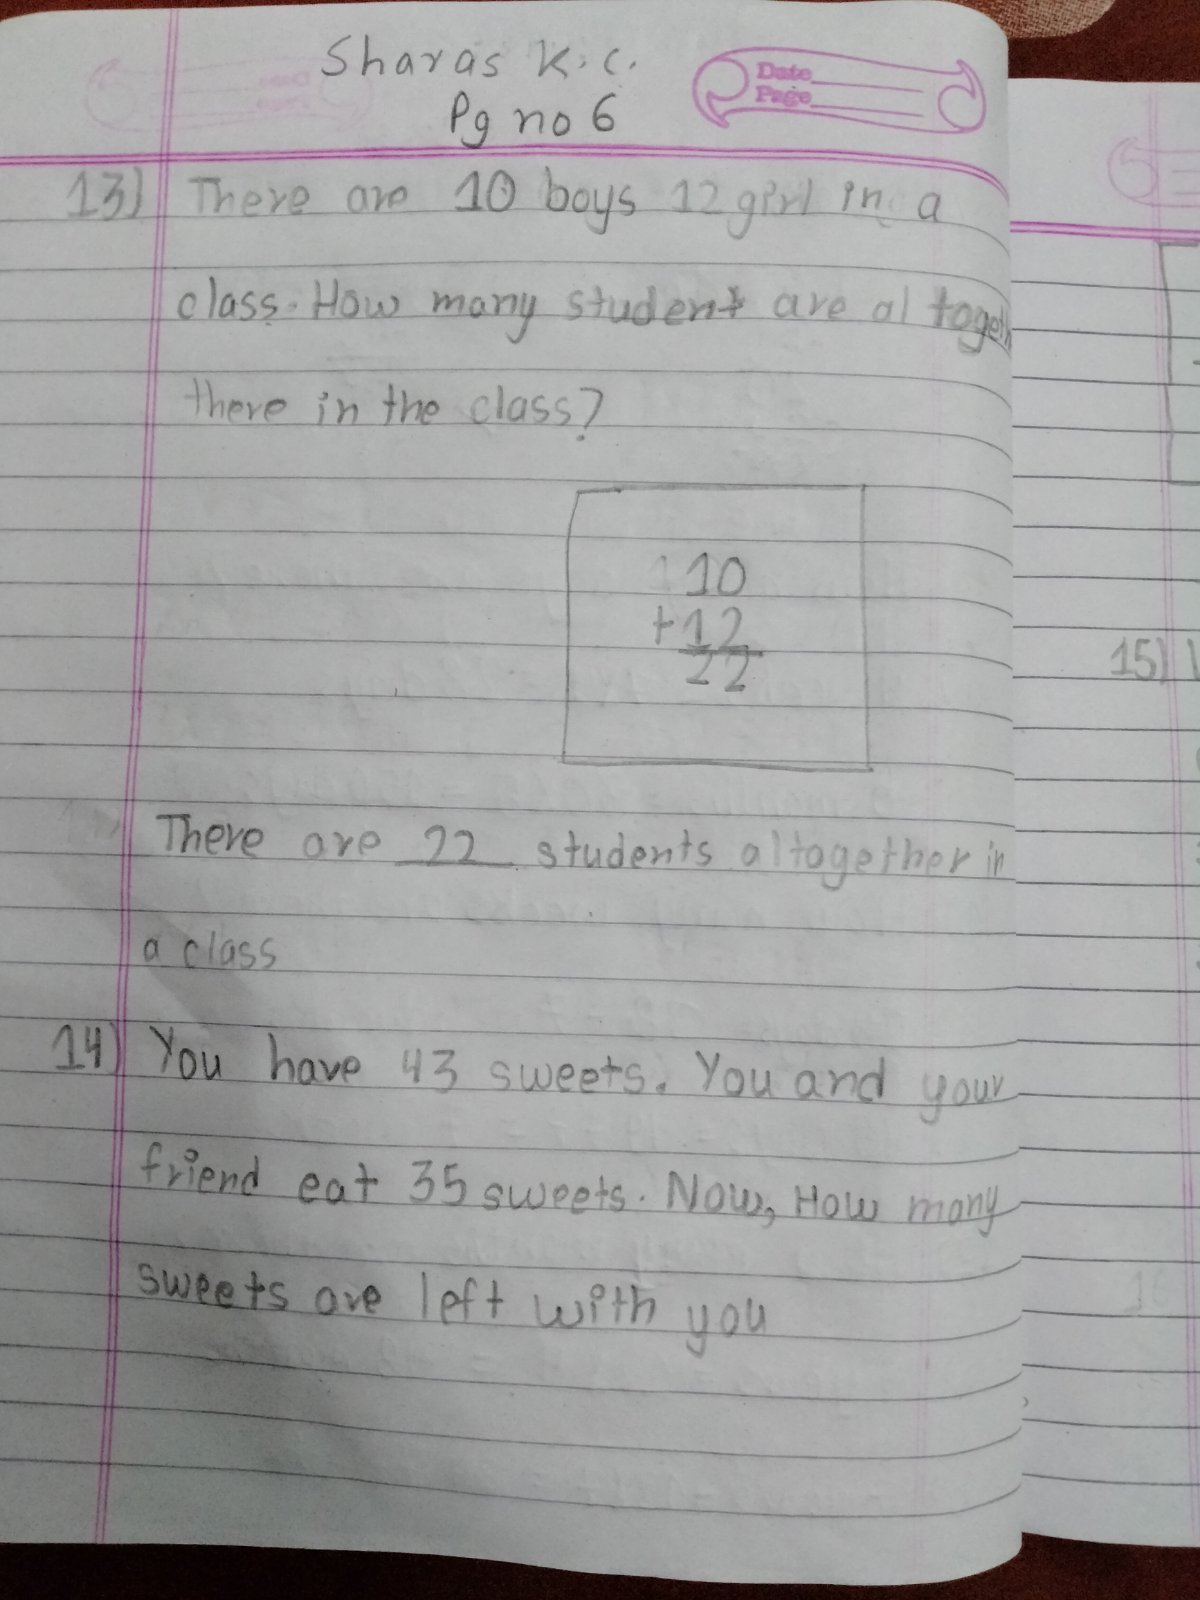 Sharas K.C.
Date
Page
Pg no 6
13) There are 10 boys 12 girl in a
class. How many student are al togeth
there in the class?
10
+12
22
There are 22 students altogether in
a class
14) You have 43 sweets. You and your
friend eat 35 sweets. Now, How many
sweets are left with you
15)